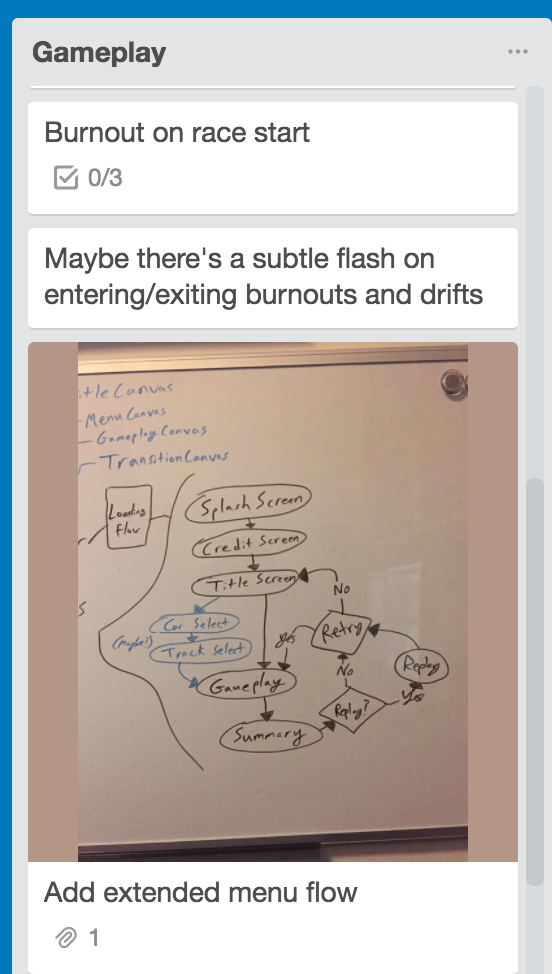 Gameplay
Burnout on race start
0/3
Maybe there's a subtle flash on
entering/exiting burnouts and drifts
itleCanvas
-MenuCanvas
-GameplayCanvas
-TransitionCanvas
Loading
Flow
Splash Screen
Credit Screen
Title Screen
No
Car Select
(Maybe?)
Track Select
yes
Retry
No
Replay
Gameplay
Replay?
yes
Summary
Add extended menu flow
1